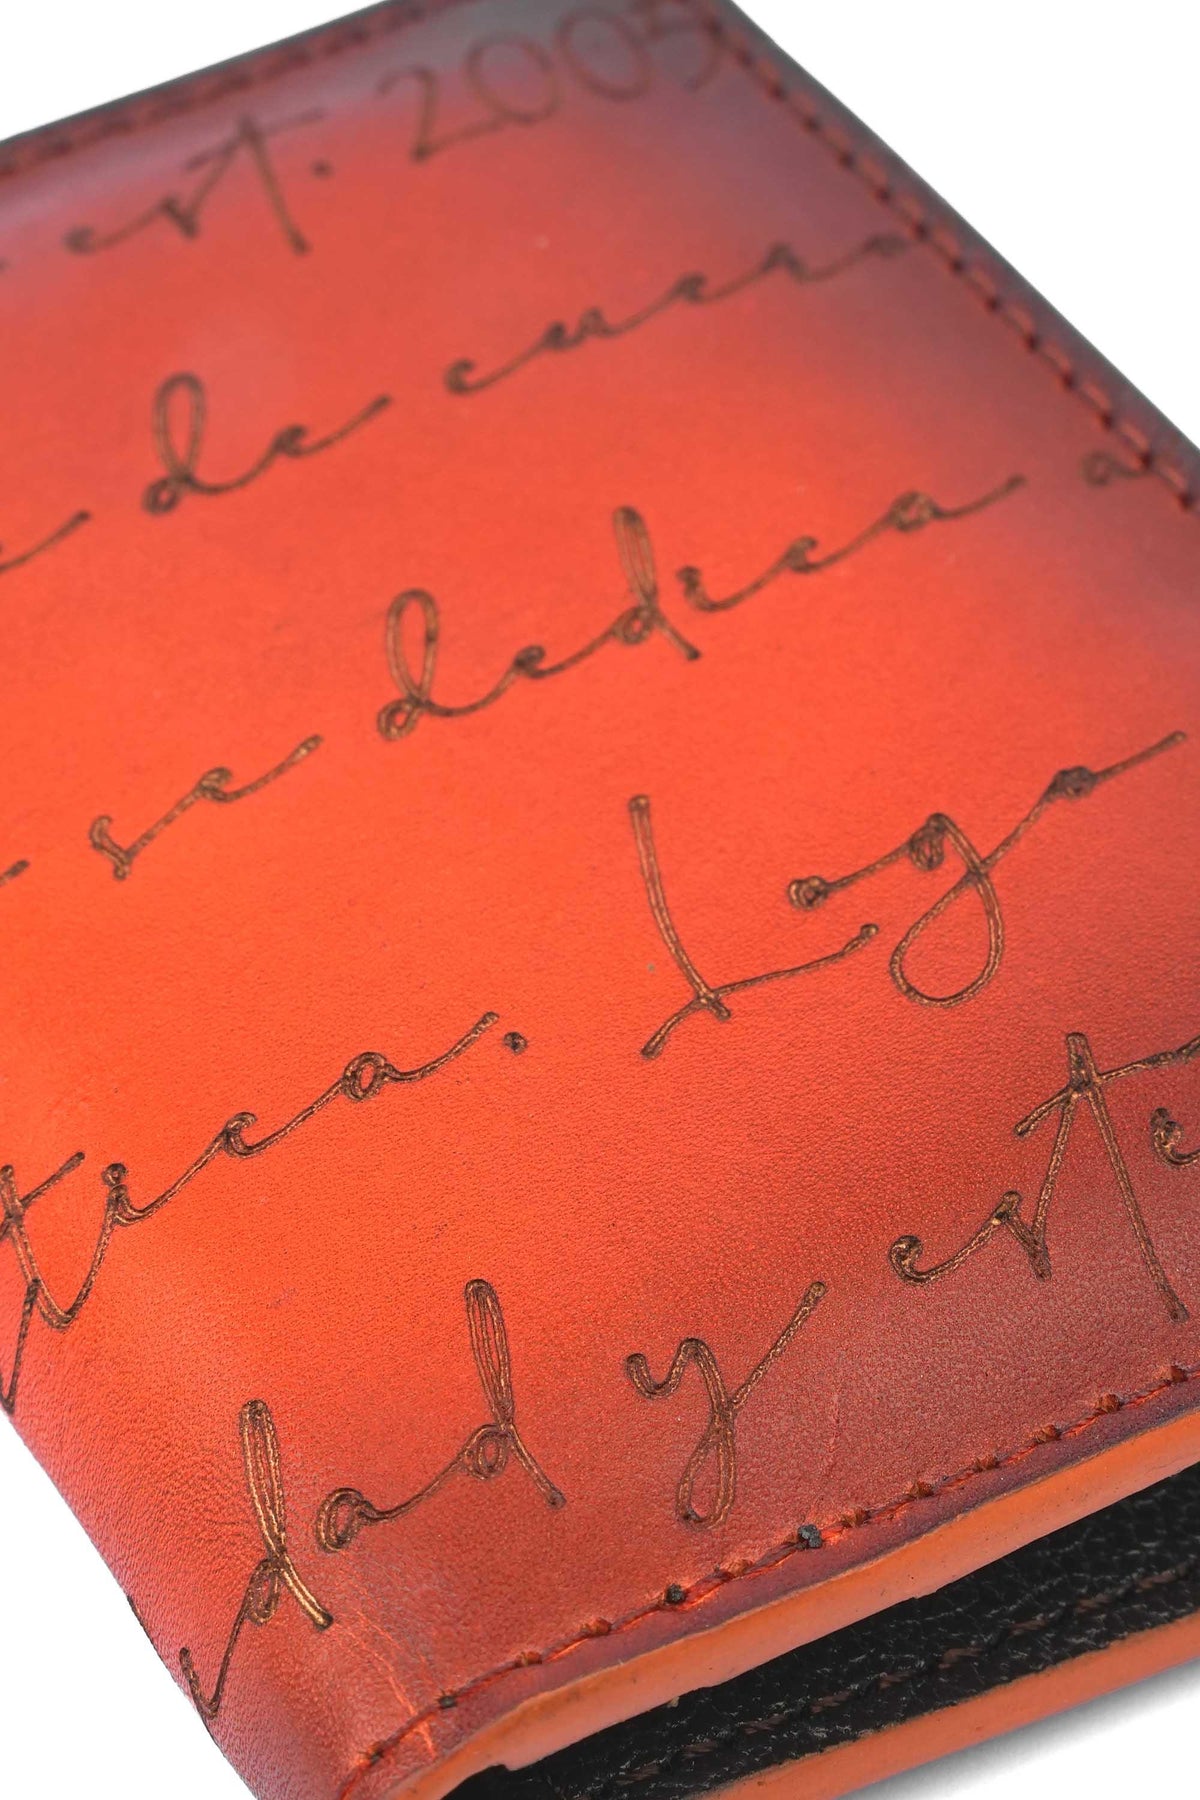 est. 2005
de cuero
se dedica a
tica. Logo
dad y este